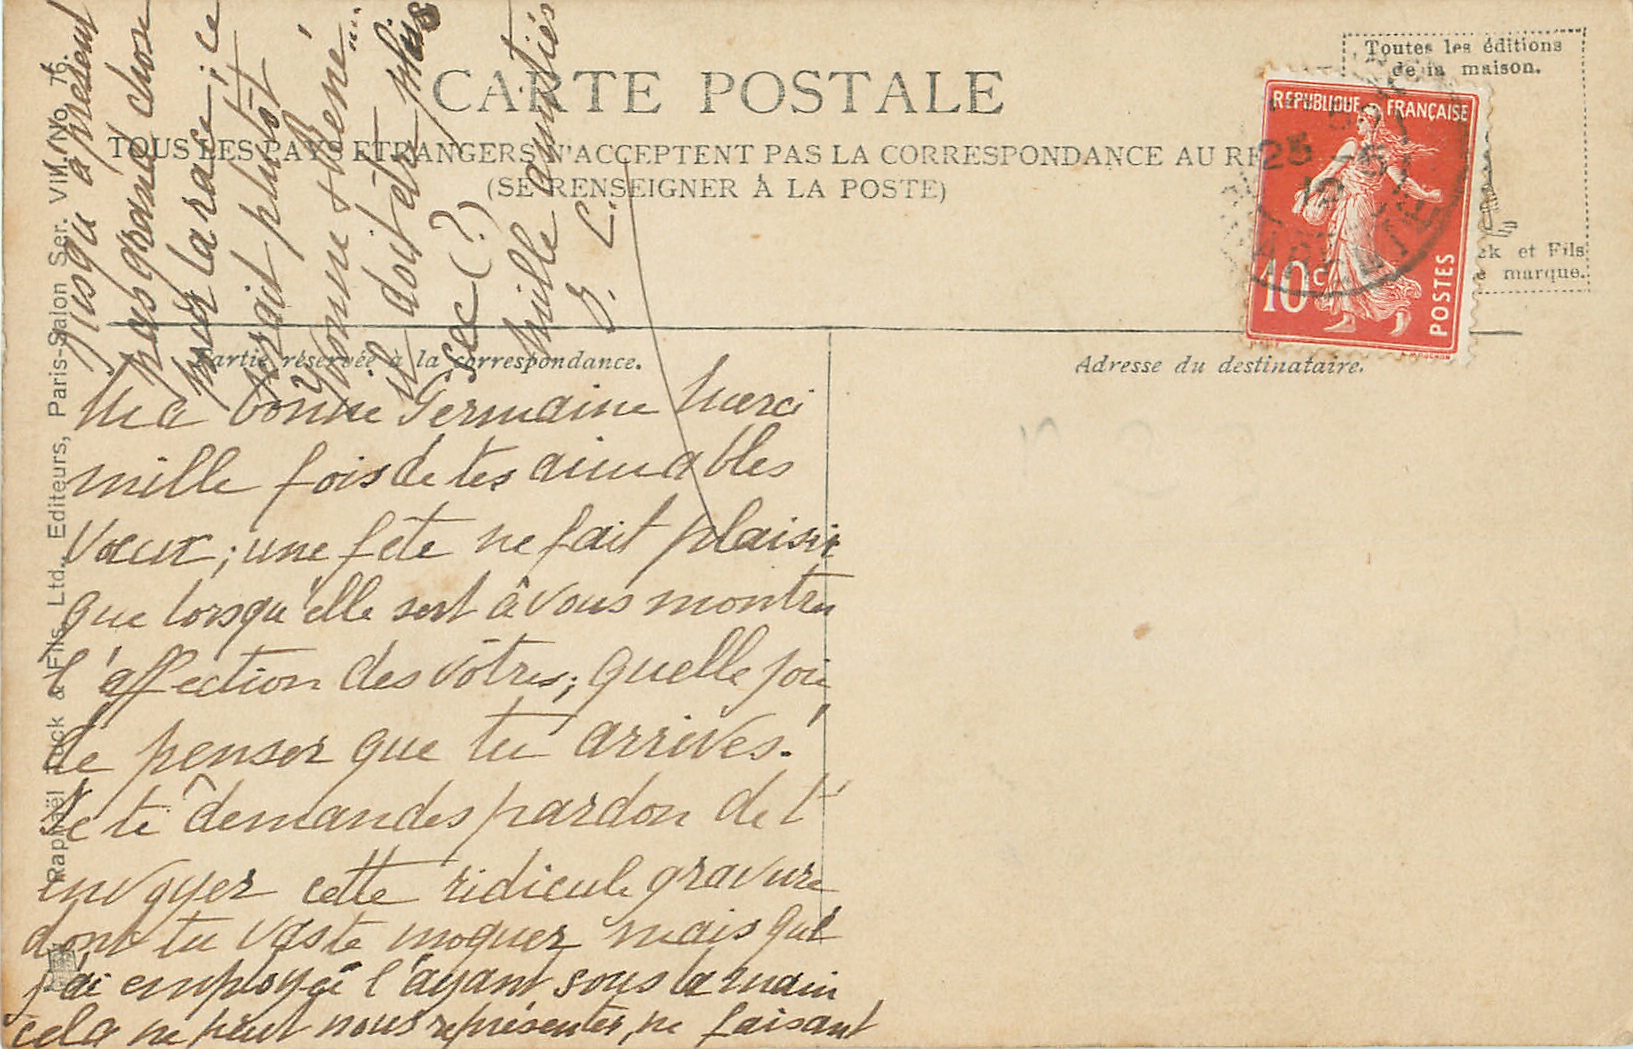 CARTE POSTALE
TOUS LES PAYS ETRANGERS N'ACCEPTENT PAS LA CORRESPONDANCE AU RE
(SE RENSEIGNER À LA POSTE)
Toutes les éditions
de la maison.
ck et Fils
marque.
REPUBLIQUE FRANÇAISE
10c
POSTES
25 -5
12
Partie réservée à la correspondance.
Adresse du destinataire.
Raphaël Tuck & Fils, Ltd., Editeurs, Paris-Salon Ser. VIII. No. 76.
Ma bonne Germaine Merci
mille fois de tes aimables
vœux ; une fête ne fait plaisir
que lorsqu'elle sert à vous montrer
l'affection des vôtres ; quelle joie
de penser que tu arrives.
Je te demandes pardon de t'
envoyer cette ridicule gravure
dont tu vas te moquer mais que
j'ai employée l'ayant sous la main
cela ne peut nous représenter, ne faisant
jusqu'à présent
pas grand chose
pour la race ; ce
serait plutôt
Yvonne & René ...
il doit être plus
sec (?)
Mille amitiés
C.